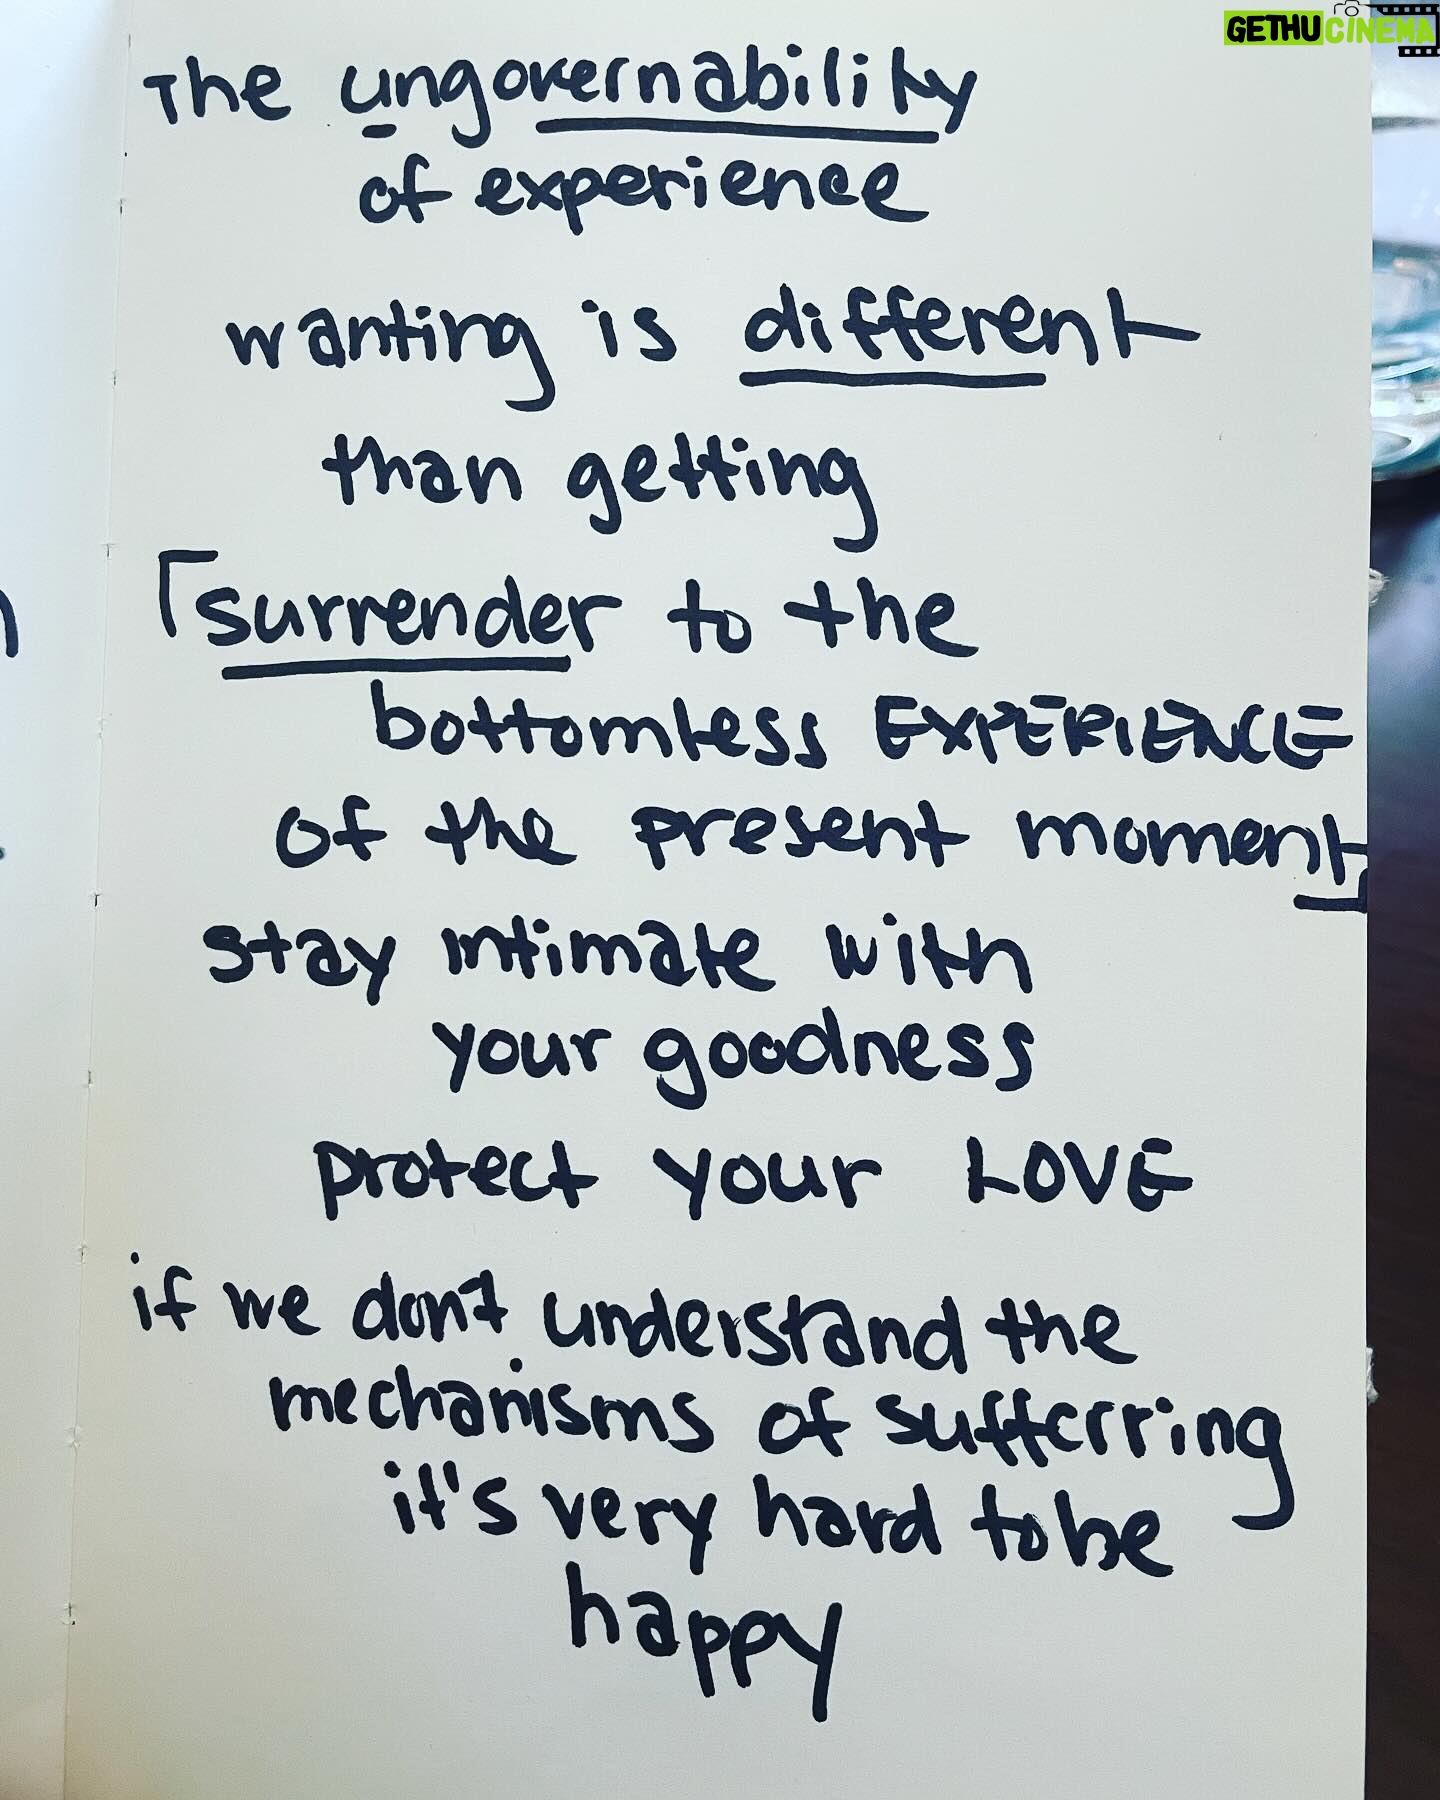 GETHUCINEMA
The ungovernability
of experience
wanting is different
than getting
surrender to the
bottomless EXPERIENCE
of the present moment
stay intimate with
your goodness
protect your LOVE
if we don't understand the
mechanisms of sufferring
it's very hard to be
happy